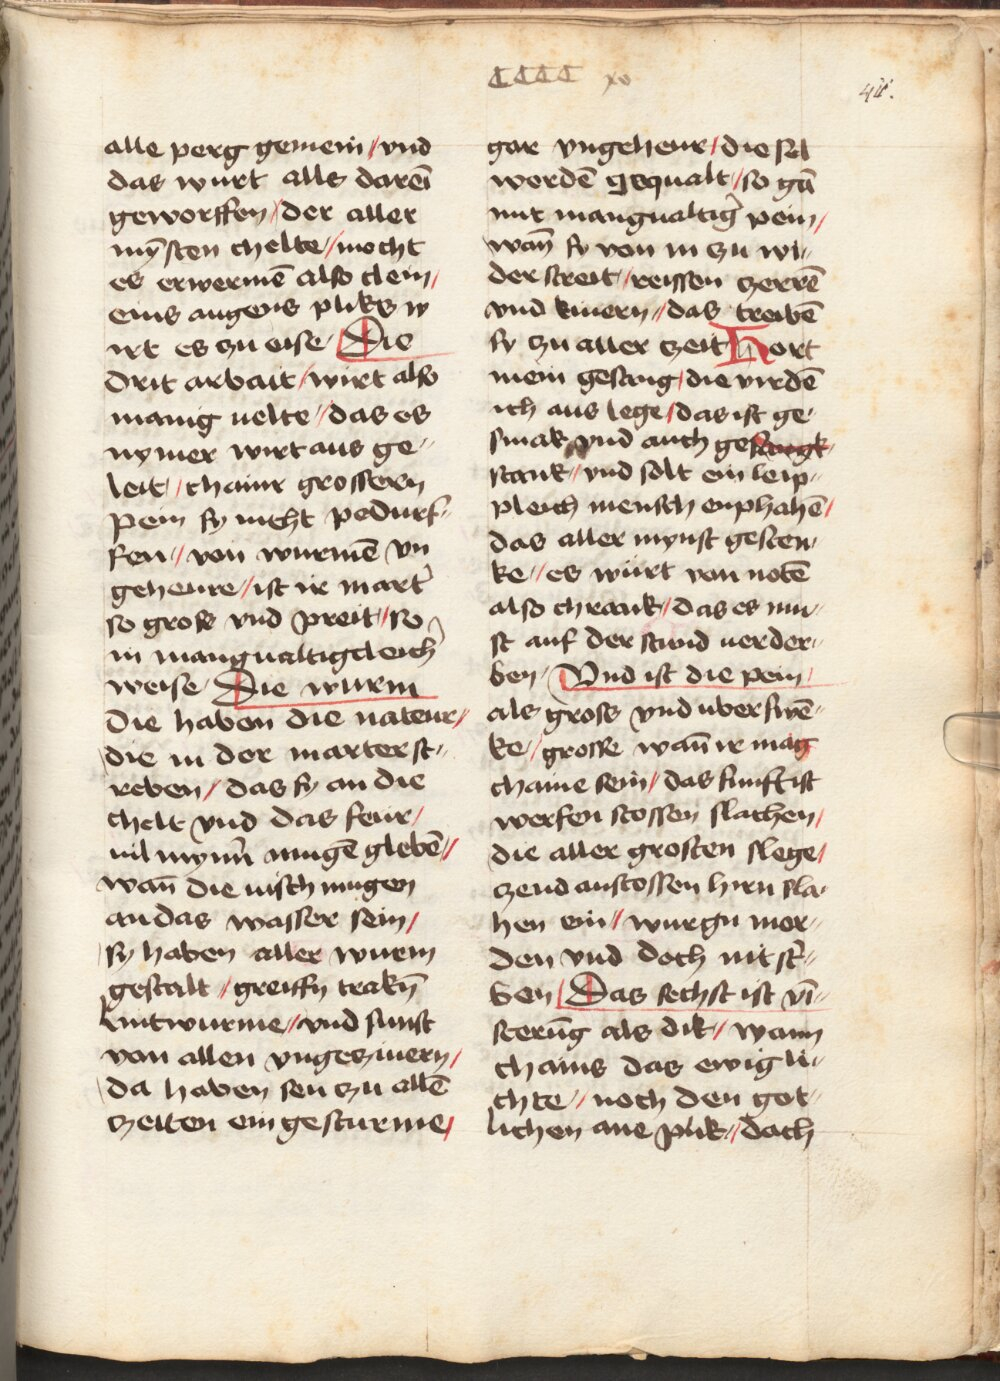 CCCC xv
411.
alle perg gemein / vnd
das wurt alls dareī
geworffen / der aller
mÿsten chelte / mocht
es erwermē also clein /
eins augens pliks w
irt es zu eise / Die
drit arbait / wirt also
manig uelte / das es
nymer wirt aus ge-
leit / chainr grossern
pein sy nicht pedurf-
fen / von wurmē vn
geheure / ist ir mart̉
so gross vnd preit / so
in mangualtigcleich̉
weise / Die wurm
die haben die nateur /
die in der marter st-
reben / das sy an die
chelt vnd das feur /
nit mynn̄ mugē glebē /
wan̄ die uisch mugen
an das wasser sein /
sy haben aller wurm
gestalt / greiffn trakn̄
lintwurme / vnd sunst
von allen vngeziuern /
da haben seu zu allē
zeiten ein gesturme /
gar vngeheur / die sel
werdē gequalt / so gā
mit mangualtig̉ pein /
wan̄ sy von in zu wi-
derstreit / reissen zerrē
vnd kinern / das treibē
sy zu aller zeit Hort
mein gesang / die virdē
ich aus lege / das ist ge-
smak vnd auch gesangk
stank / vnd solt ein leip-
pleich mensch enphahē /
das aller mynst gesten-
ke / es würt von notē
also chrank / das es mu-
st auf der stund uerder-
ben / Vnd ist die pein /
als gross vnd uberswē-
ke / grosse wan̄ ir mag
chaine sein / das funft ist
werfen stossen slachen /
die aller grosten slege /
zend anstossen hirn sla-
hen ein / wurgn mor-
den vnd doch nit st̉-
ben / Das sechst ist vī-
sterūg als dik / wann
chains das ewig li-
chte / noch den got-
lichen ane plik / doch